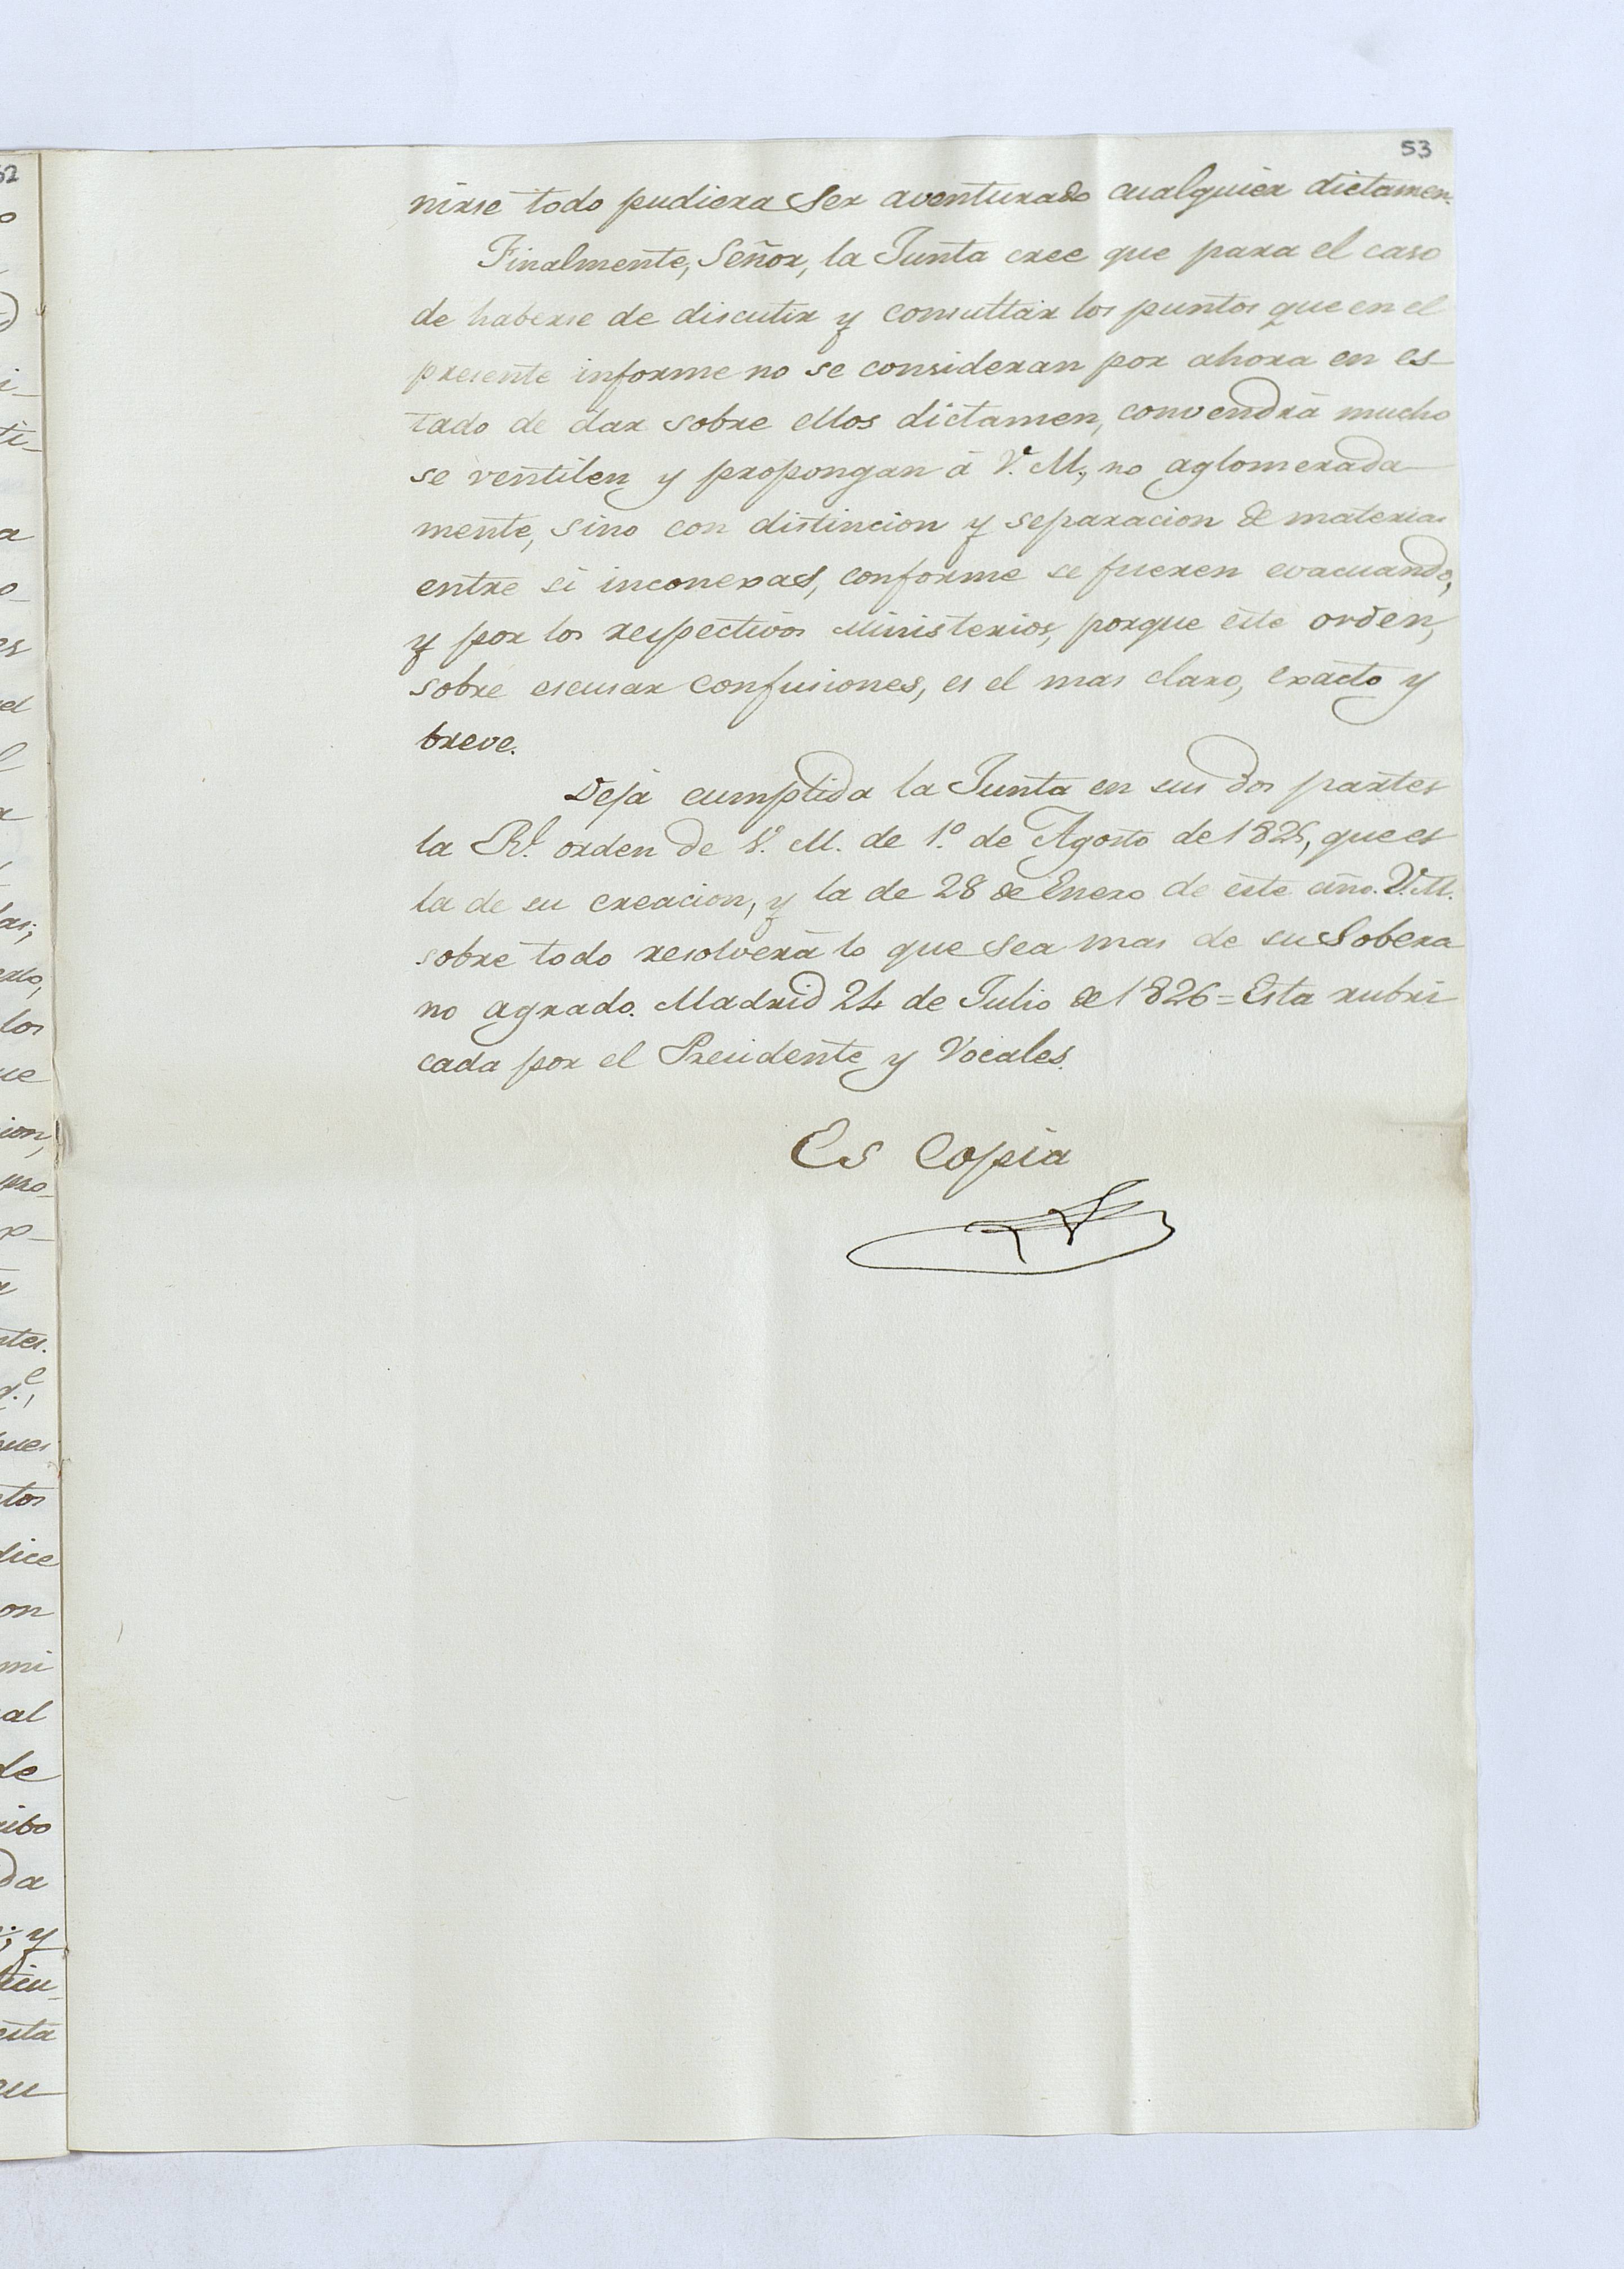 53
nirse todo pudiera ser aventurado cualquier dictamen.
Finalmente, Señor, la Junta cree que para el caso
de haberse de discutir y consultar los puntos que en el
presente informe no se consideran por ahora en es-
tado de dar sobre ellos dictamen, convendrá mucho
se ventilen y propongan á V. M., no aglomerada
mente, sino con distincion y separacion de materias
entre si inconexas, conforme se fueren evacuando,
y por los respectivos Ministerios, porque este orden,
sobre escusar confusiones, es el mas claro, exacto y
breve.
Deja cumplida la Junta en sus dos partes
la Rl. orden de V. M. de 1.º de Agosto de 1825, que es
la de su creacion, y la de 28 de Enero de este año. V. M.
sobre todo resolverá lo que sea mas de su Sobera
no agrado. Madrid 24 de Julio de 1826 = Esta rubri
cada por el Presidente y Vocales.
Es Copia